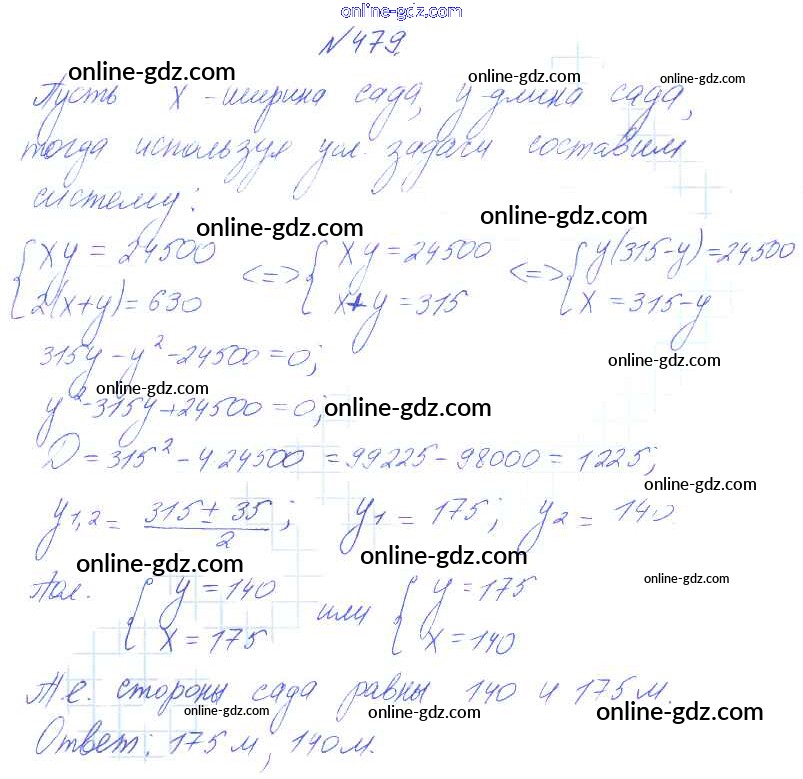 online-gdz.com
№479.
online-gdz.com online-gdz.com online-gdz.com
Пусть x - ширина сада, y-длина сада,
тогда используя усл. задачи составим
систему:
online-gdz.com online-gdz.com
{ xy = 24500 <=> { xy = 24500 <=> { y(315-y)=24500
{ 2(x+y)=630 { x+y = 315 { x = 315-y
315y - y² - 24500 = 0; online-gdz.com
online-gdz.com
y² - 315y + 24500 = 0; online-gdz.com
D = 315² - 4·24500 = 99225 - 98000 = 1225;
online-gdz.com
y1,2 = (315 ± 35)/2; y1 = 175; y2 = 140.
online-gdz.com online-gdz.com online-gdz.com
Пол. { y = 140 или { y = 175
{ x = 175 { x = 140
Т.е. стороны сада равны 140 и 175 м.
online-gdz.com online-gdz.com online-gdz.com
Ответ: 175 м, 140 м.